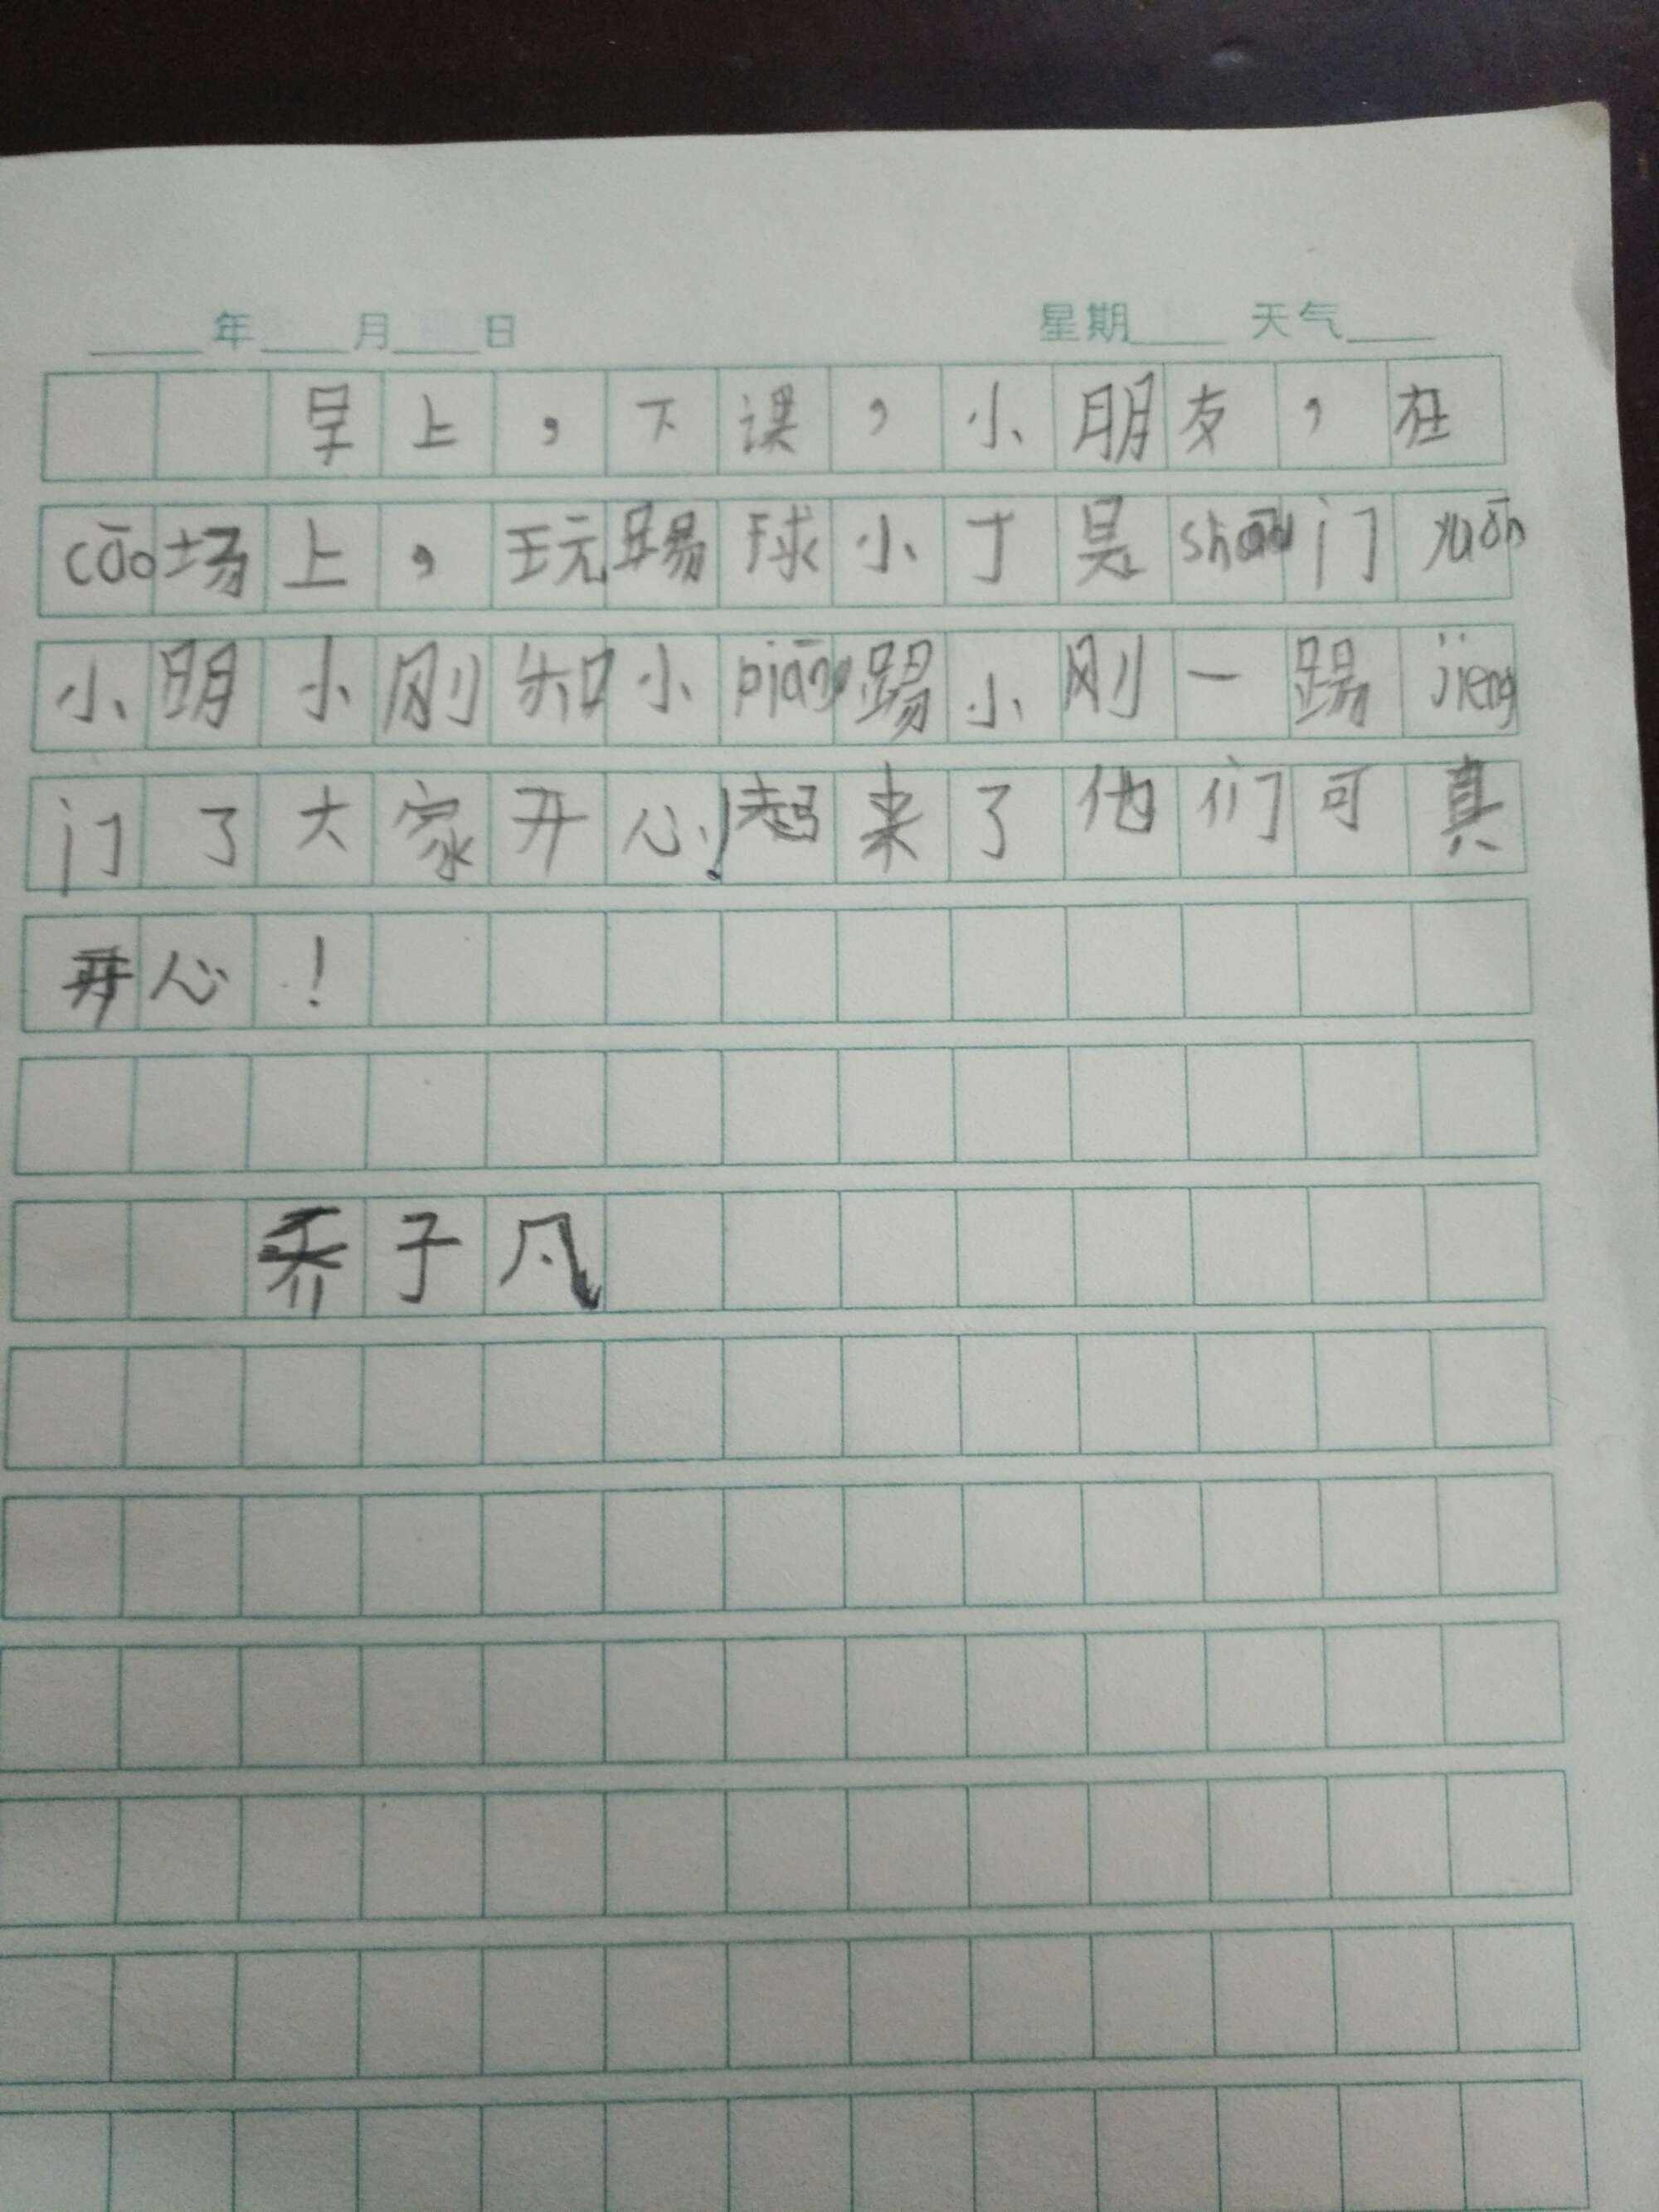 年 月 日 星期 天气
早上，下课，小朋友，在
cāo场上，玩踢球小丁是shǒu门yuán
小明小刚和小piāng踢小刚一踢jieng
门了大家开心！起来了他们可真
开心！
乔子凡